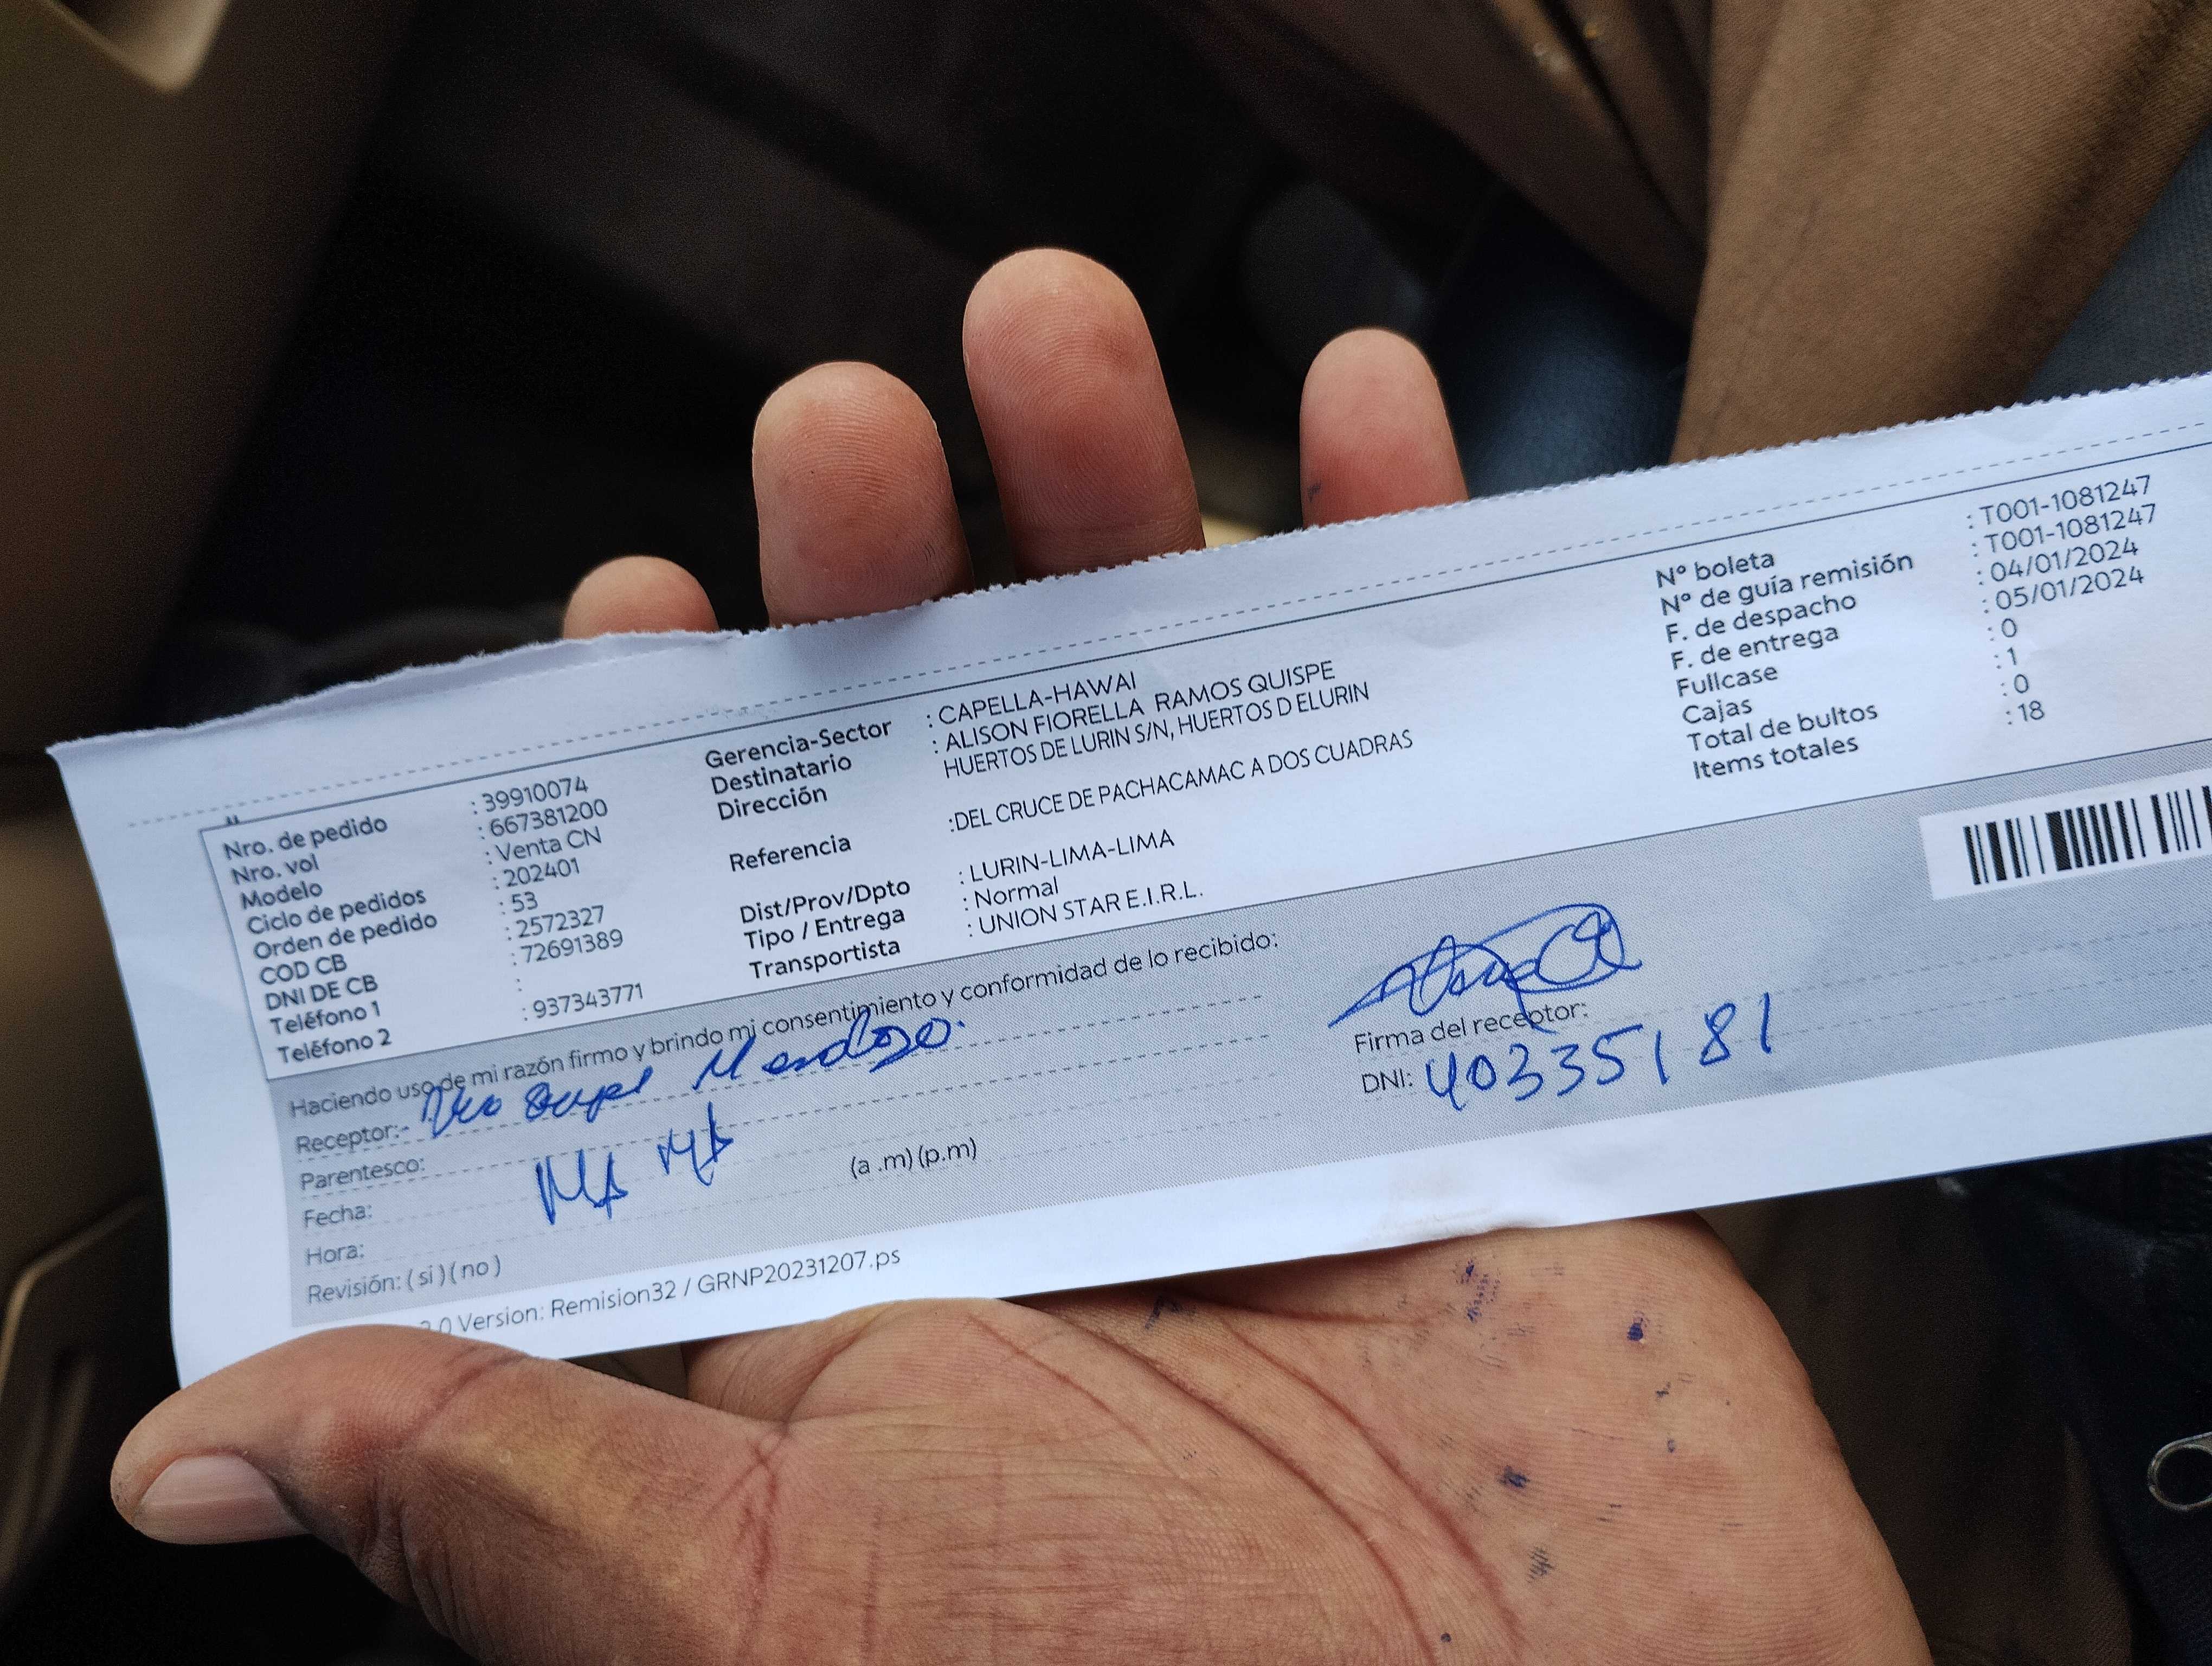 Nro. de pedido : 39910074
Nro. vol : 667381200
Modelo : Venta CN
Ciclo de pedidos : 202401
Orden de pedido : 53
COD CB : 2572327
DNI DE CB : 72691389
Teléfono 1 :
Teléfono 2 : 937343771
Gerencia-Sector : CAPELLA-HAWAI
Destinatario : ALISON FIORELLA RAMOS QUISPE
Dirección HUERTOS DE LURIN S/N, HUERTOS D ELURIN
Referencia :DEL CRUCE DE PACHACAMAC A DOS CUADRAS
Dist/Prov/Dpto : LURIN-LIMA-LIMA
Tipo / Entrega : Normal
Transportista : UNION STAR E.I.R.L.
N° boleta : T001-1081247
N° de guía remisión : T001-1081247
F. de despacho : 04/01/2024
F. de entrega : 05/01/2024
Fullcase : 0
Cajas : 1
Total de bultos : 0
Items totales : 18
Haciendo uso de mi razón firmo y brindo mi consentimiento y conformidad de lo recibido:
Receptor:- Mendoza
Parentesco: MA MA
Fecha:
Hora: (a .m) (p.m)
Revisión: ( si ) ( no )
Firma del receptor:
DNI: 40335181
2.0 Version: Remision32 / GRNP20231207.ps